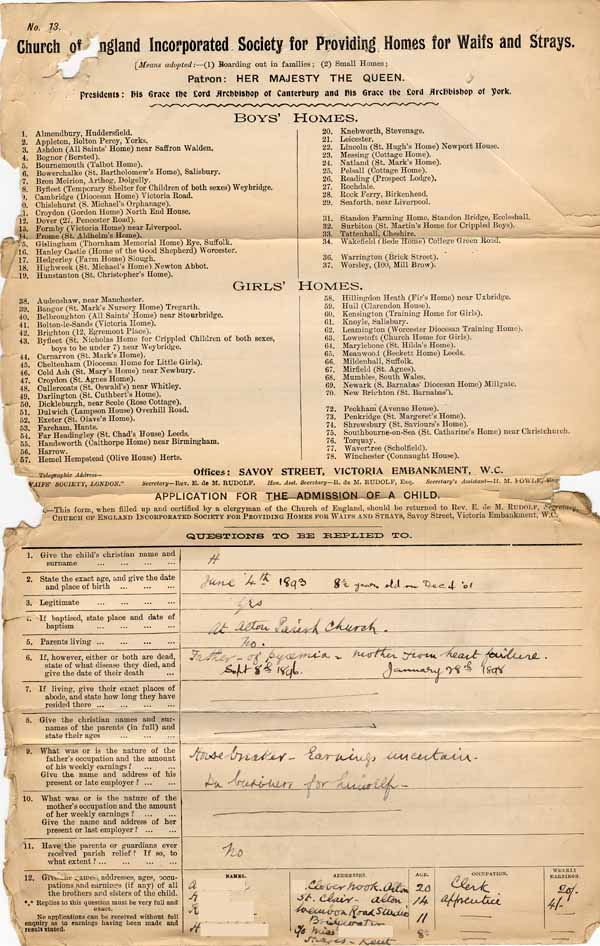 No. 13.
Church of England Incorporated Society for Providing Homes for Waifs and Strays.
[Means adopted:—(1) Boarding out in families; (2) Small Homes;
Patron: HER MAJESTY THE QUEEN.
Presidents: His Grace the Lord Archbishop of Canterbury and His Grace the Lord Archbishop of York.
BOYS' HOMES.
1. Almondbury, Huddersfield.
2. Appleton, Bolton Percy, Yorks.
3. Ashdon (All Saints' Home) near Saffron Walden.
4. Bognor (Bersted).
5. Bournemouth (Talbot Home).
6. Bowerchalke (St. Bartholomew's Home), Salisbury.
7. Bron Meirion, Arthog, Dolgelly.
8. Byfleet (Temporary Shelter for Children of both sexes) Weybridge.
9. Cambridge (Diocesan Home) Victoria Road.
10. Chislehurst (S. Michael's Orphanage).
11. Croydon (Gordon Home) North End House.
12. Dover (27, Pencester Road).
13. Formby (Victoria Home) near Liverpool.
14. Frome (St. Aldhelm's Home).
15. Gislingham (Thornham Memorial Home) Eye, Suffolk.
16. Hanley Castle (Home of the Good Shepherd) Worcester.
17. Hedgerley (Farm Home) Slough.
18. Highweek (St. Michael's Home) Newton Abbot.
19. Hunstanton (St. Christopher's Home).
20. Knebworth, Stevenage.
21. Leicester.
22. Lincoln (St. Hugh's Home) Newport House.
23. Messing (Cottage Home).
24. Natland (St. Mark's Home).
25. Peball (Cottage Home).
26. Reading (Prospect Lodge).
27. Rochdale.
28. Rock Ferry, Birkenhead.
29. Seaforth, near Liverpool.
31. Standon Farming Home, Standon Bridge, Eccleshall.
32. Surbiton (St. Martin's Home for Crippled Boys).
33. Tattenhall, Cheshire.
34. Wakefield (Bede Home) College Green Road.
36. Warrington (Brick Street).
37. Worsley, (100, Mill Brow).
GIRLS' HOMES.
38. Audenshaw, near Manchester.
39. Bangor (St. Mark's Nursery Home) Tregarth.
40. Belbroughton (All Saints' Home) near Stourbridge.
41. Bolton-le-Sands (Victoria Home).
42. Brighton (12, Egremont Place).
43. Byfleet (St. Nicholas Home for Crippled Children of both sexes,
boys to be under 7) near Weybridge.
44. Carnarvon (St. Mark's Home).
45. Cheltenham (Diocesan Home for Little Girls).
46. Cold Ash (St. Mary's Home) near Newbury.
47. Croydon (St. Agnes Home).
48. Cullercoats (St. Oswald's) near Whitley.
49. Darlington (St. Cuthbert's Home).
50. Dickleburgh, near Scole (Rose Cottage).
51. Dulwich (Lampson House) Overhill Road.
52. Exeter (St. Olave's Home).
53. Fareham, Hants.
54. Far Headingley (St. Chad's House) Leeds.
55. Handsworth (Calthorpe Home) near Birmingham.
56. Harrow.
57. Hemel Hempstead (Olive House) Herts.
58. Hillingdon Heath (Fir's Home) near Uxbridge.
59. Hull (Clarendon House).
60. Kensington (Training Home for Girls).
61. Knoyle, Salisbury.
62. Leamington (Worcester Diocesan Training Home).
63. Lowestoft (Church Home for Girls).
64. Marylebone (St. Hilda's Home).
65. Meanwood (Beckett Home) Leeds.
66. Mildenhall, Suffolk.
67. Mirfield (St. Agnes).
68. Mumbles, South Wales.
69. Newark (S. Barnabas' Diocesan Home) Millgate.
70. New Brighton (St. Barnabas').
72. Peckham (Avenue House).
73. Penkridge (St. Margaret's Home).
74. Shrewsbury (St. Saviour's Home).
75. Southbourne-on-Sea (St. Catharine's Home) near Christchurch.
76. Torquay.
77. Wavertree (Scholfield).
78. Winchester (Connaught House).
Telegraphic Address—
"WAIFS' SOCIETY, LONDON."
Offices: SAVOY STREET, VICTORIA EMBANKMENT, W.C.
Secretary—Rev. E. de M. RUDOLF. Hon. Asst. Secretary—R. de M. RUDOLF, Esq. Secretary's Assistant—H. M. FOWLE, Esq.
APPLICATION FOR THE ADMISSION OF A CHILD.
—This form, when filled up and certified by a clergyman of the Church of England, should be returned to Rev. E. de M. RUDOLF, Secretary,
CHURCH OF ENGLAND INCORPORATED SOCIETY FOR PROVIDING HOMES FOR WAIFS AND STRAYS, Savoy Street, Victoria Embankment, W.C.
QUESTIONS TO BE REPLIED TO.
1. Give the child's christian name and
surname ... ... ... ...
H
2. State the exact age, and give the date
and place of birth ... ... ...
June 4th 1893 8½ years old on Dec 4 '01
3. Legitimate ... ... ... ...
Yes
4. If baptised, state place and date of
baptism ... ... ... ...
At Acton Parish Church.
5. Parents living ... ... ... ...
No.
6. If, however, either or both are dead,
state of what disease they died, and
give the date of their death ...
Father - of pyæmia - mother from heart failure.
Sept 8th 1896. January 28th 1898
7. If living, give their exact places of
abode, and state how long they have
resided there ... ... ... ...
8. Give the christian names and sur-
names of the parents (in full) and
state their ages ... ... ...
9. What was or is the nature of the
father's occupation and the amount
of his weekly earnings? ... ...
Give the name and address of his
present or late employer? ... ...
Housebreaker - Earnings uncertain -
In business for himself -
10. What was or is the nature of the
mother's occupation and the amount
of her weekly earnings? ... ...
Give the name and address of her
present or last employer? ... ...
11. Have the parents or guardians ever
received parish relief? If so, to
what extent? ... ... ... ...
No
12. Give the names, addresses, ages, occu-
pations and earnings (if any) of all
the brothers and sisters of the child.
*** Replies to this question must be very full and
exact.
No applications can be received without full
enquiry as to earnings having been made and
result stated.
NAMES. ADDRESSES. AGE. OCCUPATION. WEEKLY EARNINGS.
A Cloverhook. Acton 20 Clerk 20/-
St. Clair - Acton 14 apprentice 4/-
R Road 11
Bridgwater
H c/o Miss 8½
Kent